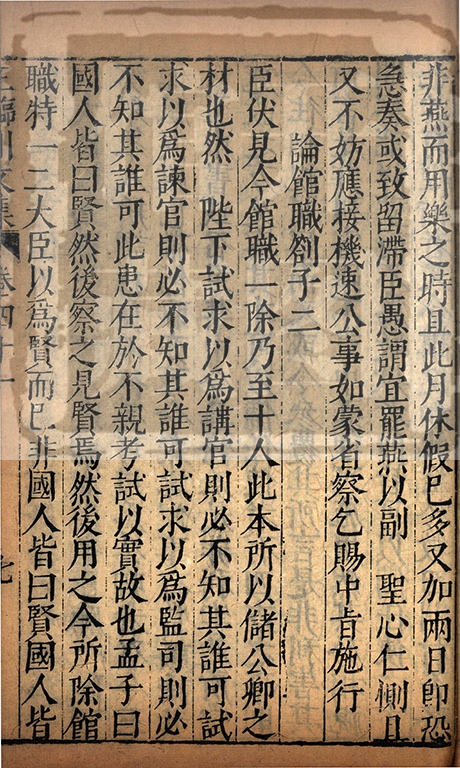 非燕而用樂之時且此月休假已多又加兩日卽恐
急奏或致留滯臣愚謂宜罷燕以副　聖心仁惻且
又不妨應接機速公事如蒙省察乞賜中旨施行
論館職劄子二
臣伏見今館職一除乃至十人此本所以儲公卿之
材也然　陛下試求以爲講官則必不知其誰可試
求以爲諫官則必不知其誰可試求以爲監司則必
不知其誰可此患在於不親考試以實故也孟子曰
國人皆曰賢然後察之見賢焉然後用之今所除館
職特一二大臣以爲賢而已非國人皆曰賢國人皆
王臨川文集　卷四十一　七